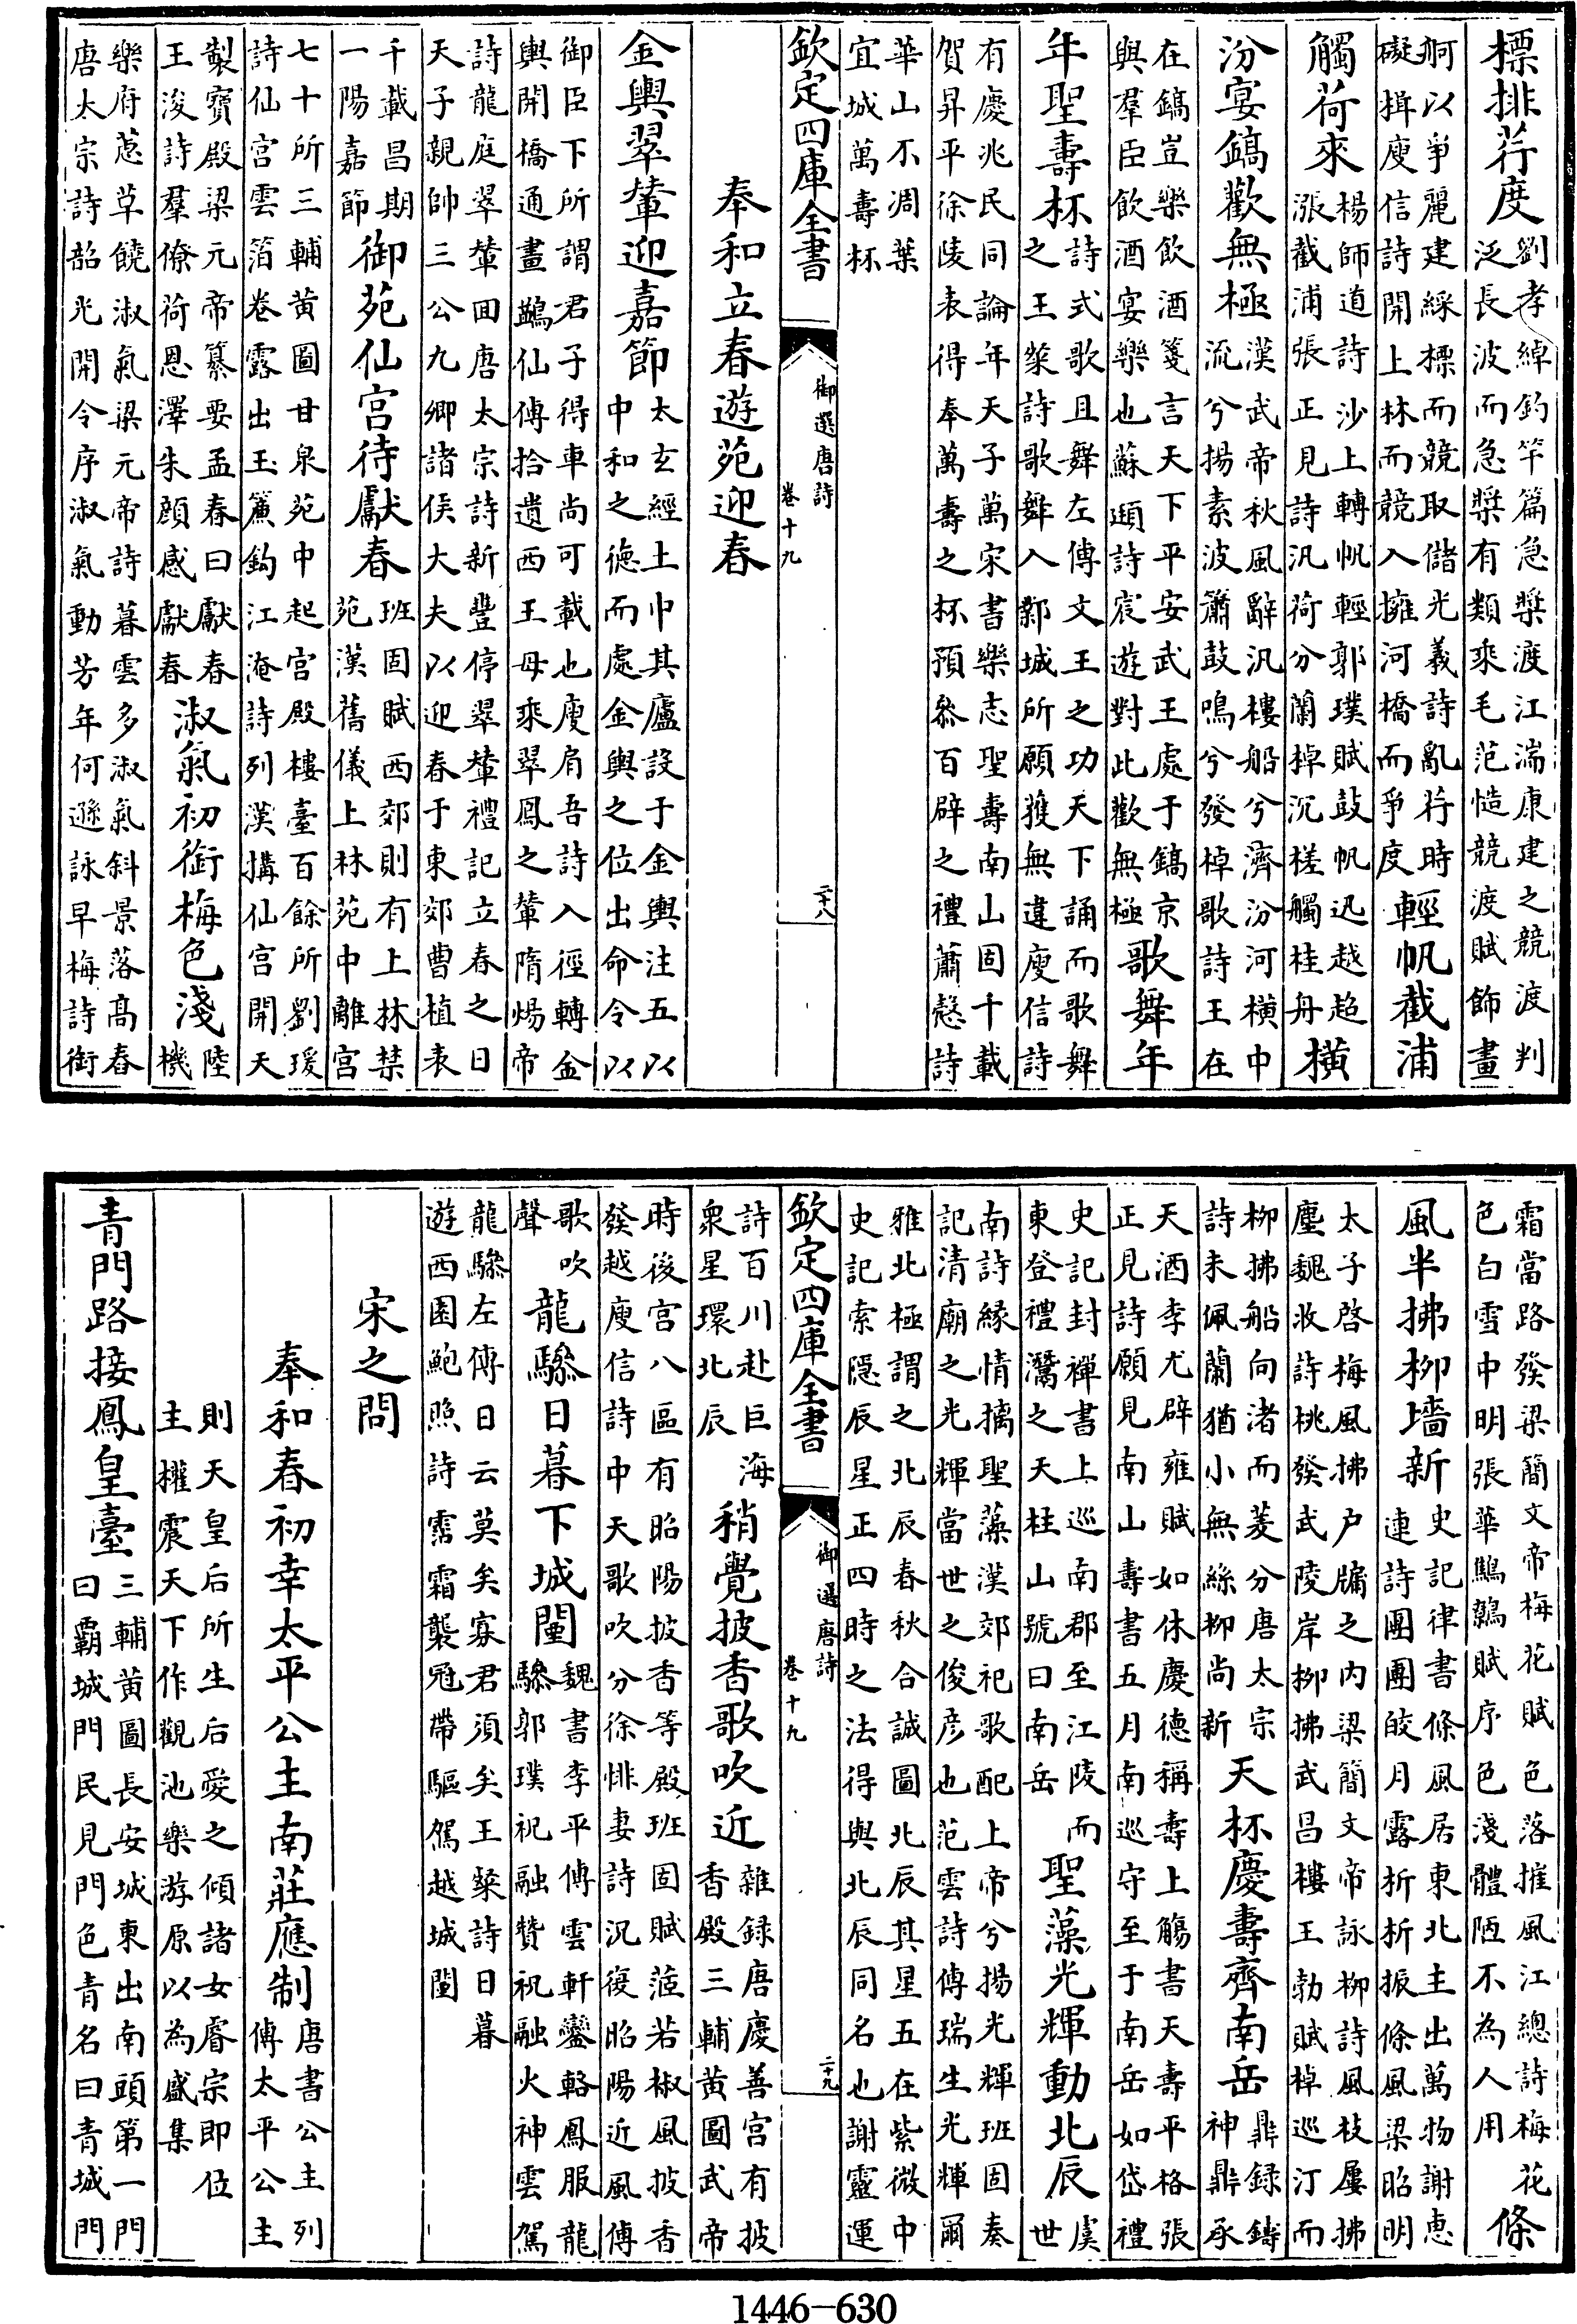 標排荇度劉孝綽釣竿篇急槳渡江湍康建之競渡判泛長波而急槳有類乘毛范慥競渡賦飾畫
舸以爭麗建綵標而競取儲光羲詩亂荇時礙揖庾信詩開上林而競入擁河橋而爭度輕帆截浦
觸荷來楊師道詩沙上轉帆輕郭璞賦鼓帆迅越趠漲截浦張正見詩汎荷分蘭棹沉槎觸桂舟橫
汾宴鎬歡無極漢武帝秋風辭汎樓船兮濟汾河橫中流兮揚素波簫鼓鳴兮發棹歌詩王在
在鎬豈樂飲酒箋言天下平安武王處于鎬京與羣臣飲酒宴樂也蘇頲詩宸遊對此歡無極歌舞年
年聖壽杯詩式歌且舞左傳文王之功天下誦而歌舞之王粲詩歌舞入鄴城所願獲無違庾信詩
有慶兆民同論年天子萬宋書樂志聖壽南山固千載賀昇平徐陵表得奉萬壽之杯預叅百辟之禮蕭慤詩
華山不凋葉宜城萬壽杯
欽定四庫全書 御選唐詩 卷十九 二十八
奉和立春遊苑迎春
金輿翠輦迎嘉節太玄經土中其廬設于金輿注五以中和之德而處金輿之位出命令以
御臣下所謂君子得車尚可載也庾肩吾詩入徑轉金輿開橋通畫鷁仙傅拾遺西王母乘翠鳳之輦隋煬帝
詩龍庭翠輦回唐太宗詩新豐停翠輦禮記立春之日天子親帥三公九卿諸侯大夫以迎春于東郊曹植表
千載昌期一陽嘉節御苑仙宮待獻春班固賦西郊則有上林禁苑漢舊儀上林苑中離宮
七十所三輔黃圖甘泉苑中起宮殿樓臺百餘所劉瑗詩仙宮雲箔卷露出玉簾鈎江淹詩列漢搆仙宮開天
製寶殿梁元帝纂要孟春曰獻春王浚詩羣僚荷恩澤朱顏感獻春淑氣初銜梅色淺陸機
樂府蕙草饒淑氣梁元帝詩暮雲多淑氣斜景落高舂唐太宗詩韶光開令序淑氣動芳年何遜詠早梅詩銜
霜當路發梁簡文帝梅花賦色落摧風江總詩梅花色白雪中明張華鷦鷯賦序色淺體陋不為人用條
風半拂柳墻新史記律書條風居東北主出萬物謝惠連詩團團皎月露析析振條風梁昭明
太子啓梅風拂户牖之内梁簡文帝詠柳詩風枝屢拂塵魏收詩桃發武陵岸柳拂武昌樓王勃賦棹巡汀而
柳拂船向渚而菱分唐太宗詩未佩蘭猶小無絲柳尚新天杯慶壽齊南岳鼎録鑄神鼎承
天酒李尤辟雍賦如休慶德稱壽上觴書天壽平格張正見詩願見南山壽書五月南巡守至于南岳如岱禮
史記封禪書上巡南郡至江陵而東登禮灊之天柱山號曰南岳聖藻光輝動北辰虞世
南詩緣情摛聖藻漢郊祀歌配上帝兮揚光輝班固奏記清廟之光輝當世之俊彥也范雲詩傅瑞生光輝爾
雅北極謂之北辰春秋合誠圖北辰其星五在紫微中史記索隱辰星正四時之法得與北辰同名也謝靈運
欽定四庫全書 御選唐詩 卷十九 二十九
詩百川赴巨海衆星環北辰稍覺披香歌吹近雜録唐慶善宮有披香殿三輔黄圖武帝
時後宮八區有昭陽披香等殿班固賦茝若椒風披香發越庾信詩中天歌吹分徐悱妻詩況復昭陽近風傅
歌吹聲龍驂日暮下城闉魏書李平傅雲軒鑾輅鳳服龍驂郭璞祝融贊祝融火神雲駕
龍驂左傅日云莫矣寡君須矣王粲詩日暮遊西園鮑照詩霑霜襲冠帶驅駕越城闉
宋之問
奉和春初幸太平公主南莊應制唐書公主列傅太平公主
則天皇后所生后愛之傾諸女睿宗即位主權震天下作觀池樂游原以為盛集
青門路接鳳皇臺三輔黄圖長安城東出南頭第一門曰霸城門民見門色青名曰青城門
1446-630